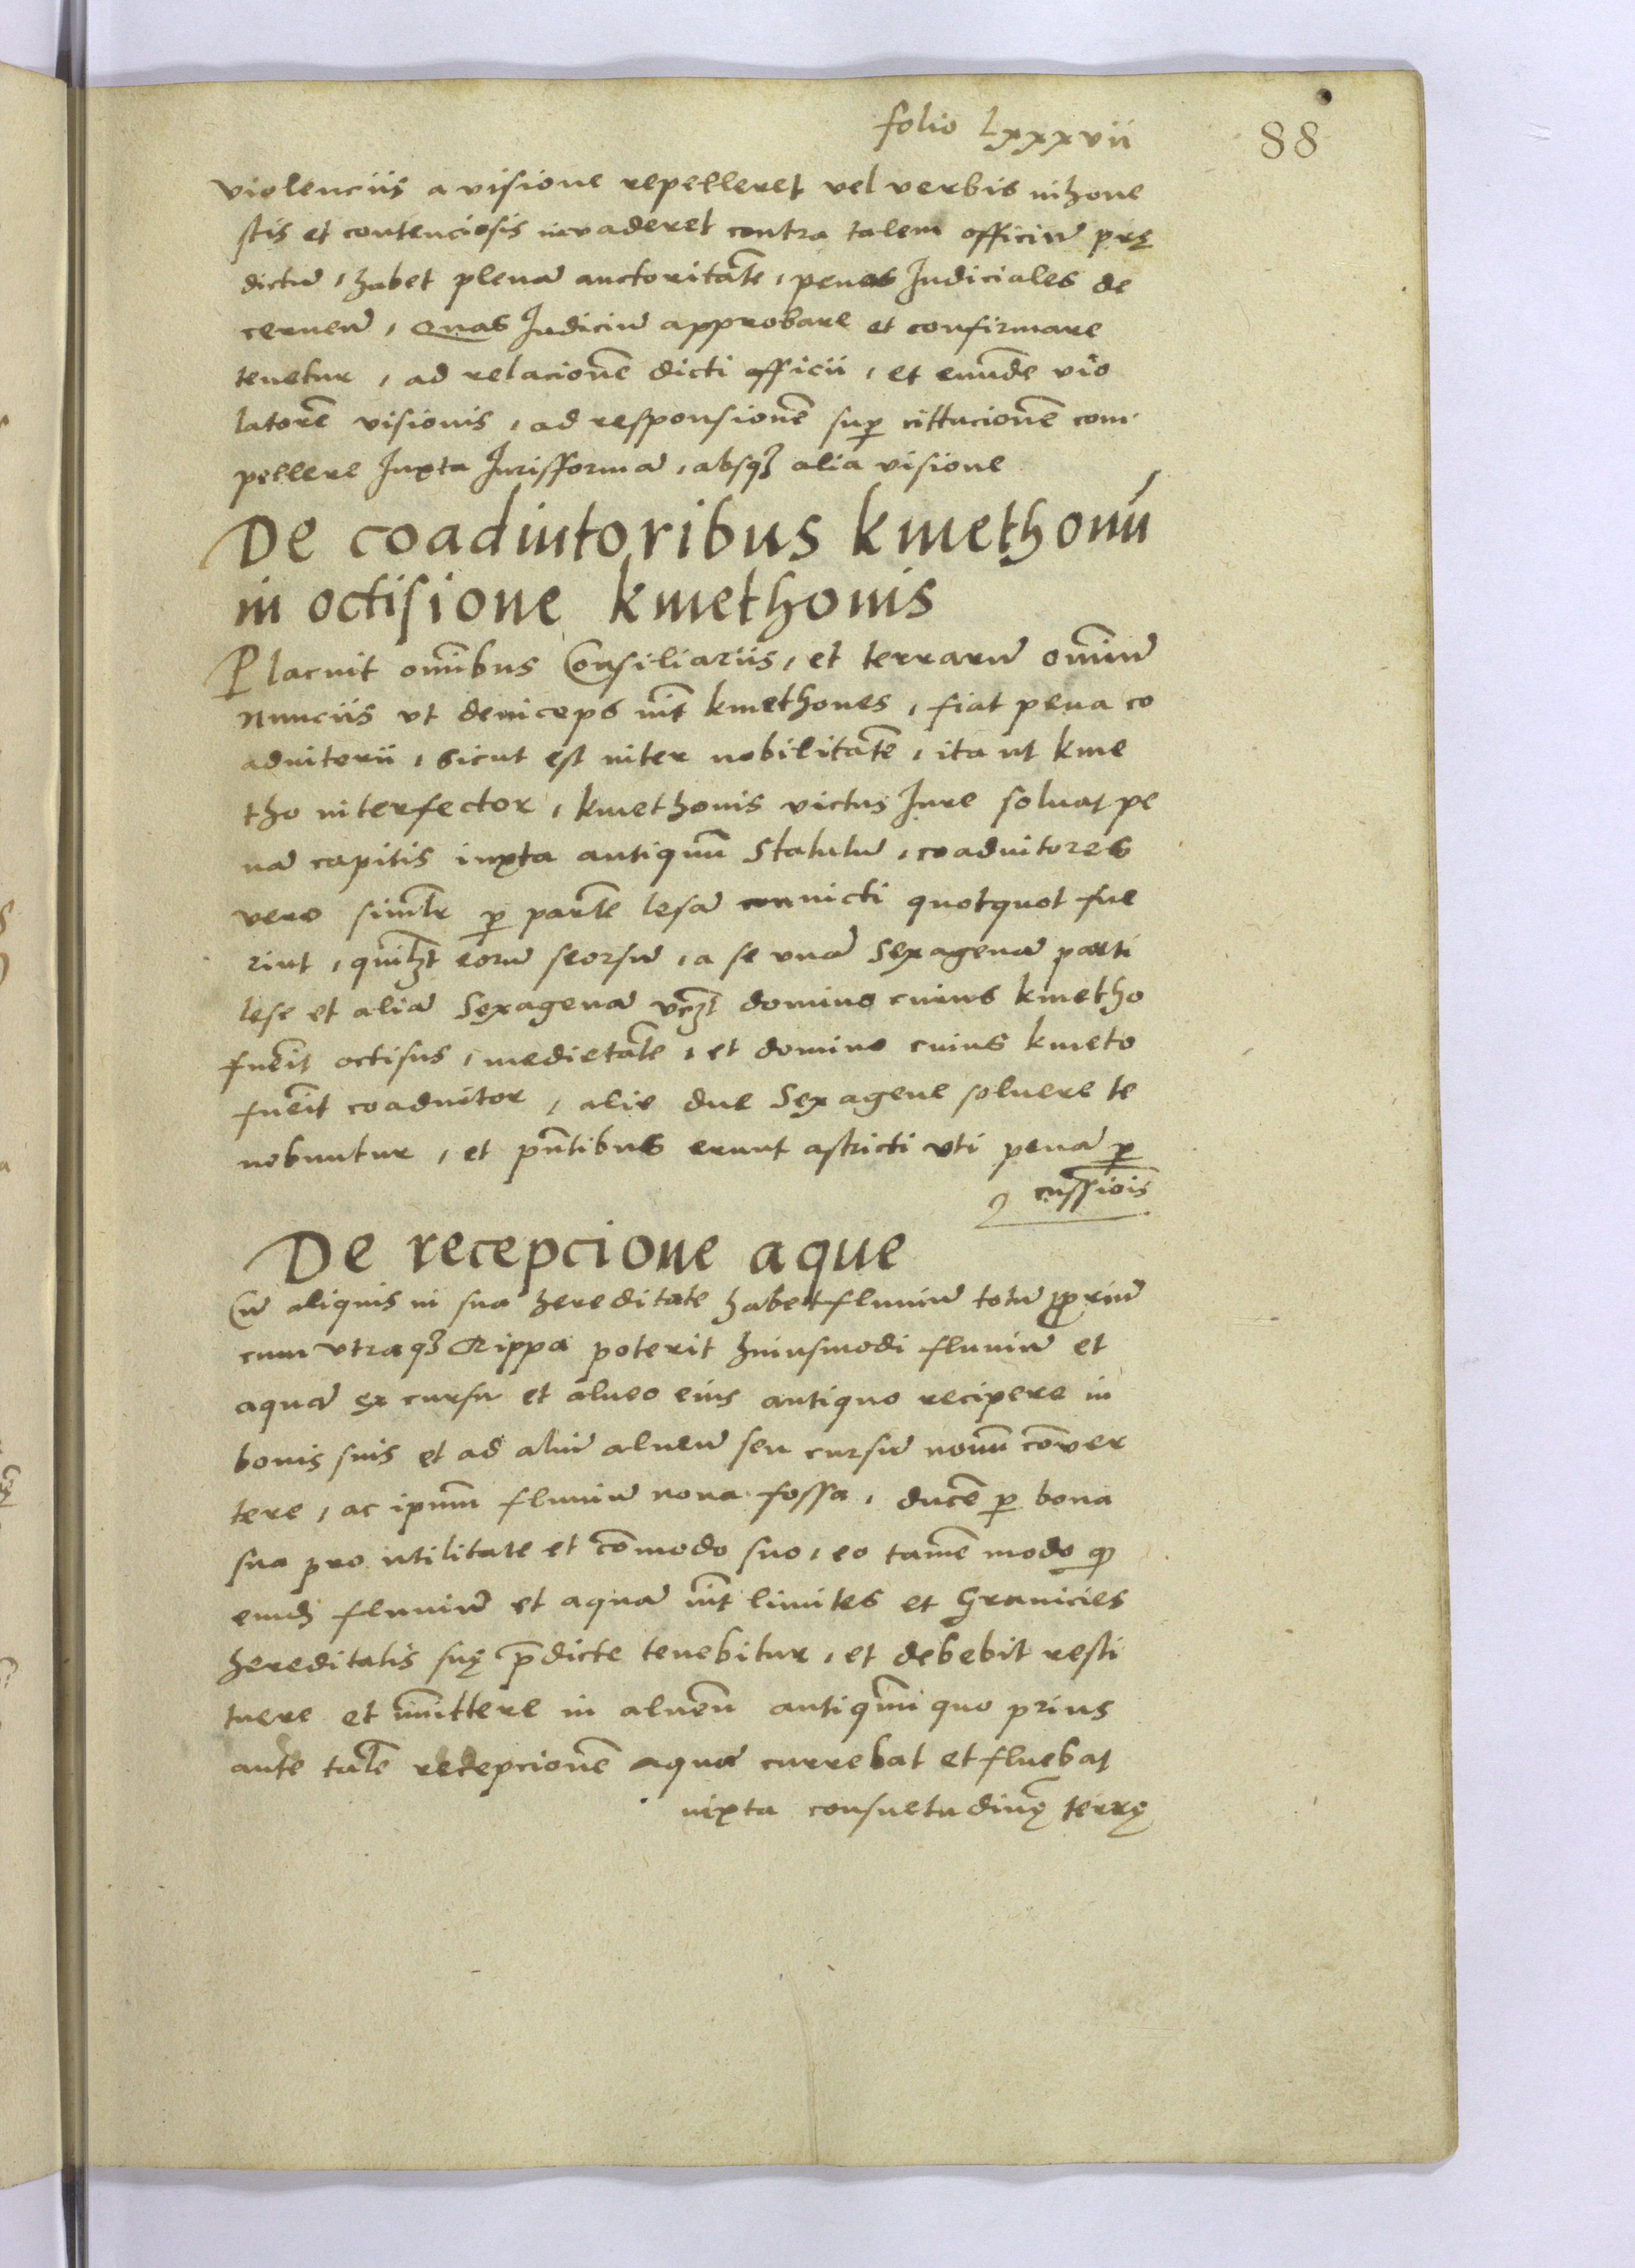 folio Lxxxvii
88
violenciis a visione repelleret vel verbis inhone
stis et contenciosis invaderet contra talem officiū prę
dictū, habet plenā auctoritatē, penas Judiciales de
cernenū, Quas Judiciū approbare et confirmare
tenetur, ad relacionē dicti officii, et eundē vio
latorē visionis, ad responsionē sup cittacionē com
pellere Juxta Jurisformā, absqȝ alia visione
De coadiutoribus kmethonū
in occisione kmethonis
Placuit om̄ibus Consiliariis, et terrarū om̄iū
nunciis vt deinceps int̄ kmethones, fiat pena co
adiutorii, sicut est inter nobilitatē, ita ut kme
tho interfector, kmethonis victus Jure soluat pe
nā capitis iuxta antiquū statutū, coadiutores
vero similr̄ p partē lesā convicti quotquot fue
rint, quilibȝt eorū seorsū, a se vnā sexagenā parti
lese et aliā sexagenā vȝt domino cuius kmetho
fuēit occisus, medietatē, et domino cuius kmeto
fuēit coadiutor, alie due sexagene soluere te
nebuntur, et pn̄tibus erunt astricti vti penā p
cussiōis
De recepcione aque
Cū aliquis in sua hereditate habet fluuiū totū ppriū
cum vtraqȝ Rippa poterit huiusmodi fluuiū et
aquā ex cursu et alueo eius antiquo recipere in
bonis suis et ad aliū alueū seu cursū nouū cōver
tere, ac ipsum̄ fluuiū noua fossa, ducē p bona
sua pro utilitate et cōmodo suo, eo tamē modo qȝ
eundȝ fluuiū et aquā int̄ limites et Granicies
hereditatis suę p̄dicte tenebitur, et debebit resti
tuere et im̄ittere in alueū antiquū quo prius
ante talē recepcionē aqua currebat et fluebat
iuxta consuetudinē terrę